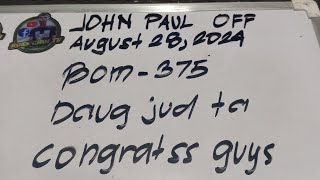 JOHN PAUL OFF
August 28, 2024
BOM-375
Daug jud ta
congratss guys